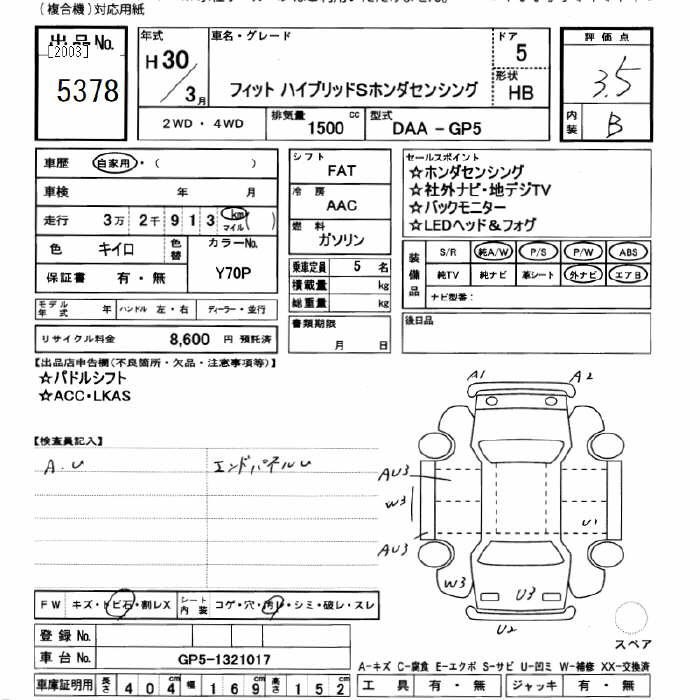 (複合機)対応用紙
出品No.
[2003]
5378
年式
H30
3月
車名・グレード
フィット ハイブリッドSホンダセンシング
ドア
5
形状
HB
2WD・4WD
排気量
1500 cc
型式
DAA-GP5
評価点
3.5
内装
B
車歴 自家用・( )
車検 年 月
走行 3万 2千 9 1 3 km マイル ( )
色 キイロ 色替
カラーNo.
Y70P
保証書 有・無
モデル年式 年 ハンドル 左・右 ディーラー・並行
リサイクル料金 8,600 円 預託済
シフト
FAT
冷房
AAC
燃料
ガソリン
乗車定員 5 名
積載量 kg
総重量 kg
書類期限
月 日
セールスポイント
☆ホンダセンシング
☆社外ナビ・地デジTV
☆バックモニター
☆LEDヘッド&フォグ
装備品
S/R 純A/W P/S P/W ABS
純TV 純ナビ 革シート 外ナビ エアB
ナビ型番:
後日品
【出品店申告欄(不良箇所・欠品・注意事項等)】
☆パドルシフト
☆ACC・LKAS
【検査員記入】
A.U
エンドパネルU
A1
A2
AU3
W3
AU3
U1
W3
U3
U2
スペア
FW キズ・トビ石・割レX
シート内装 コゲ・穴・汚レ・シミ・破レ・スレ
登録No.
車台No. GP5-1321017
車庫証明用 長さ 404cm 幅 169cm 高さ 152cm
A-キズ C-腐食 E-エクボ S-サビ U-凹ミ W-補修 XX-交換済
工具 有・無 ジャッキ 有・無